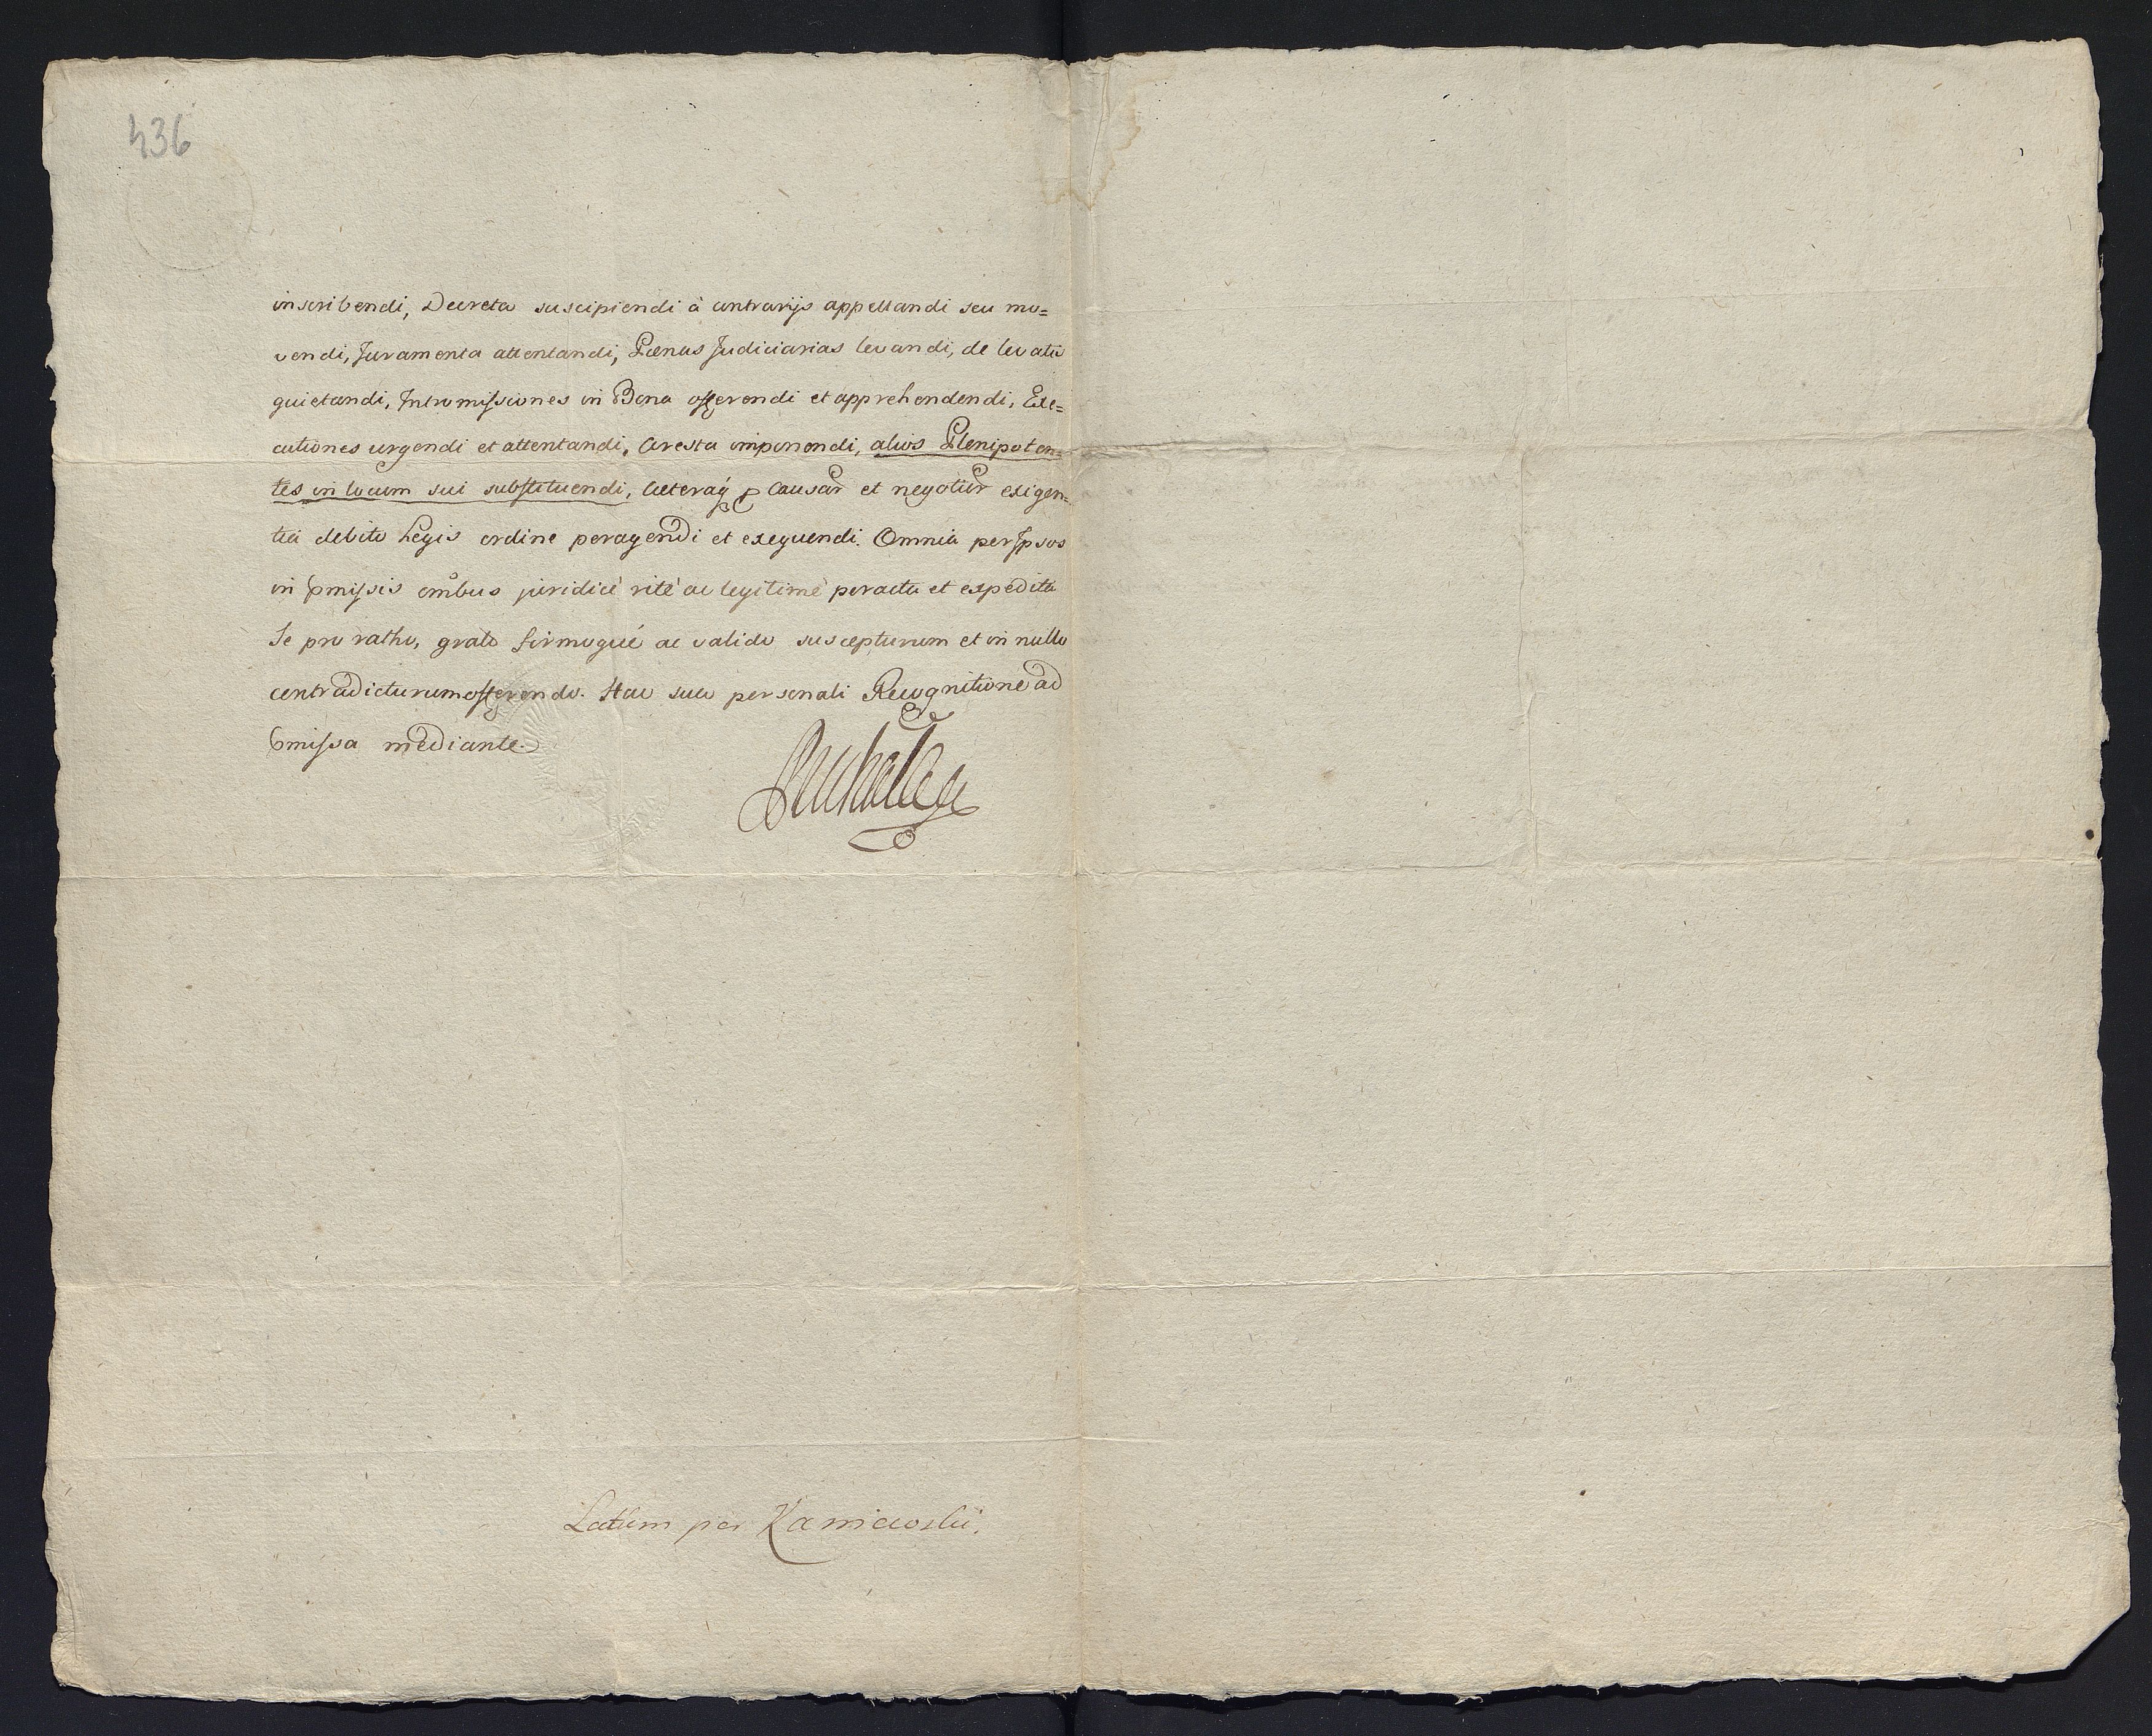 436
inscribendi, Decreta suscipiendi à contrarijs appellandi seu mo=
vendi, Juramenta attentandi, Pænas Judiciarias levandi, de levatis
quietandi, Intromissiones in Bona offerendi et apprehendendi, Exe=
cutiones urgendi et attentandi, Aresta imponendi, alios Plenipoten=
tes in locum sui substituendi, Cæteraq p Causar et negotior exigen=
tia debito Legis ordine peragendi et exequendi. Omnia per Ipsos
in pmissis ombus juridicè ritè ac legitimè peracta et expedita
Se pro ratho, grato firmoquè ac valido suscepturum et in nullo
contradicturum offerendo. Hac sua personali Recognitione ad
pmissa mediante.
Lectum per Kaniewski.